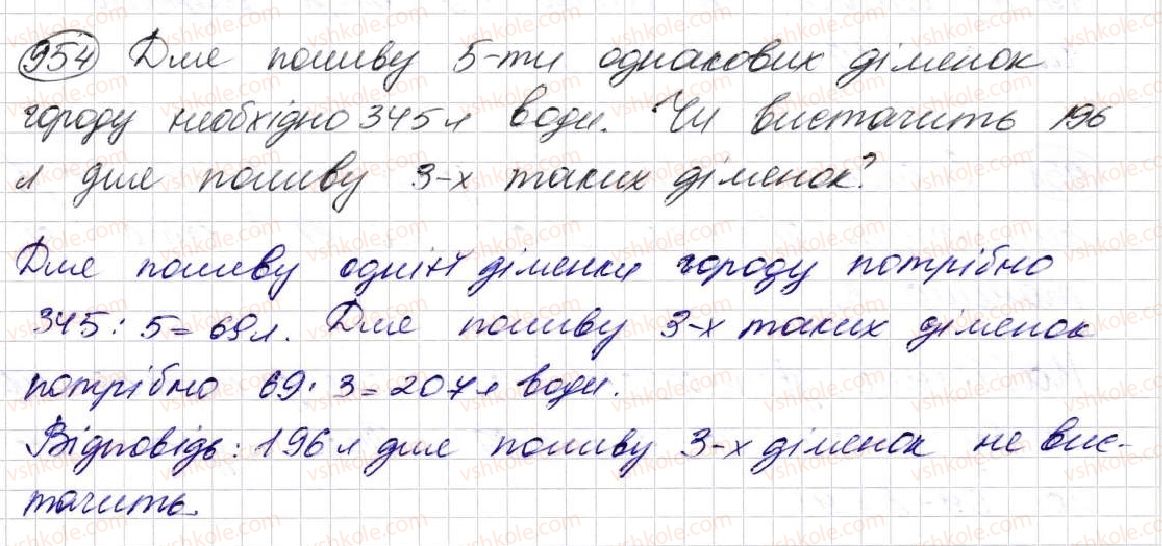 954 Для поливу 5-ти однакових ділянок
городу необхідно 345 л води. Чи вистачить 196
л для поливу 3-х таких ділянок?
Для поливу однієї ділянки городу потрібно
345 : 5 = 69 л. Для поливу 3-х таких ділянок
потрібно 69 · 3 = 207 л води.
Відповідь: 196 л для поливу 3-х ділянок не вис-
тачить.